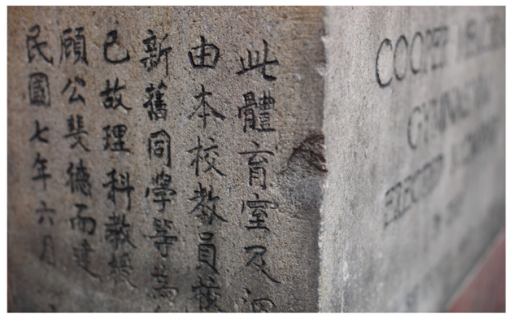 此體育室及
由本校教員校
新舊同學等為
已故理科教授
顧公斐德而建
民國七年六月
COOPER
GYMNASIUM
ERECTED